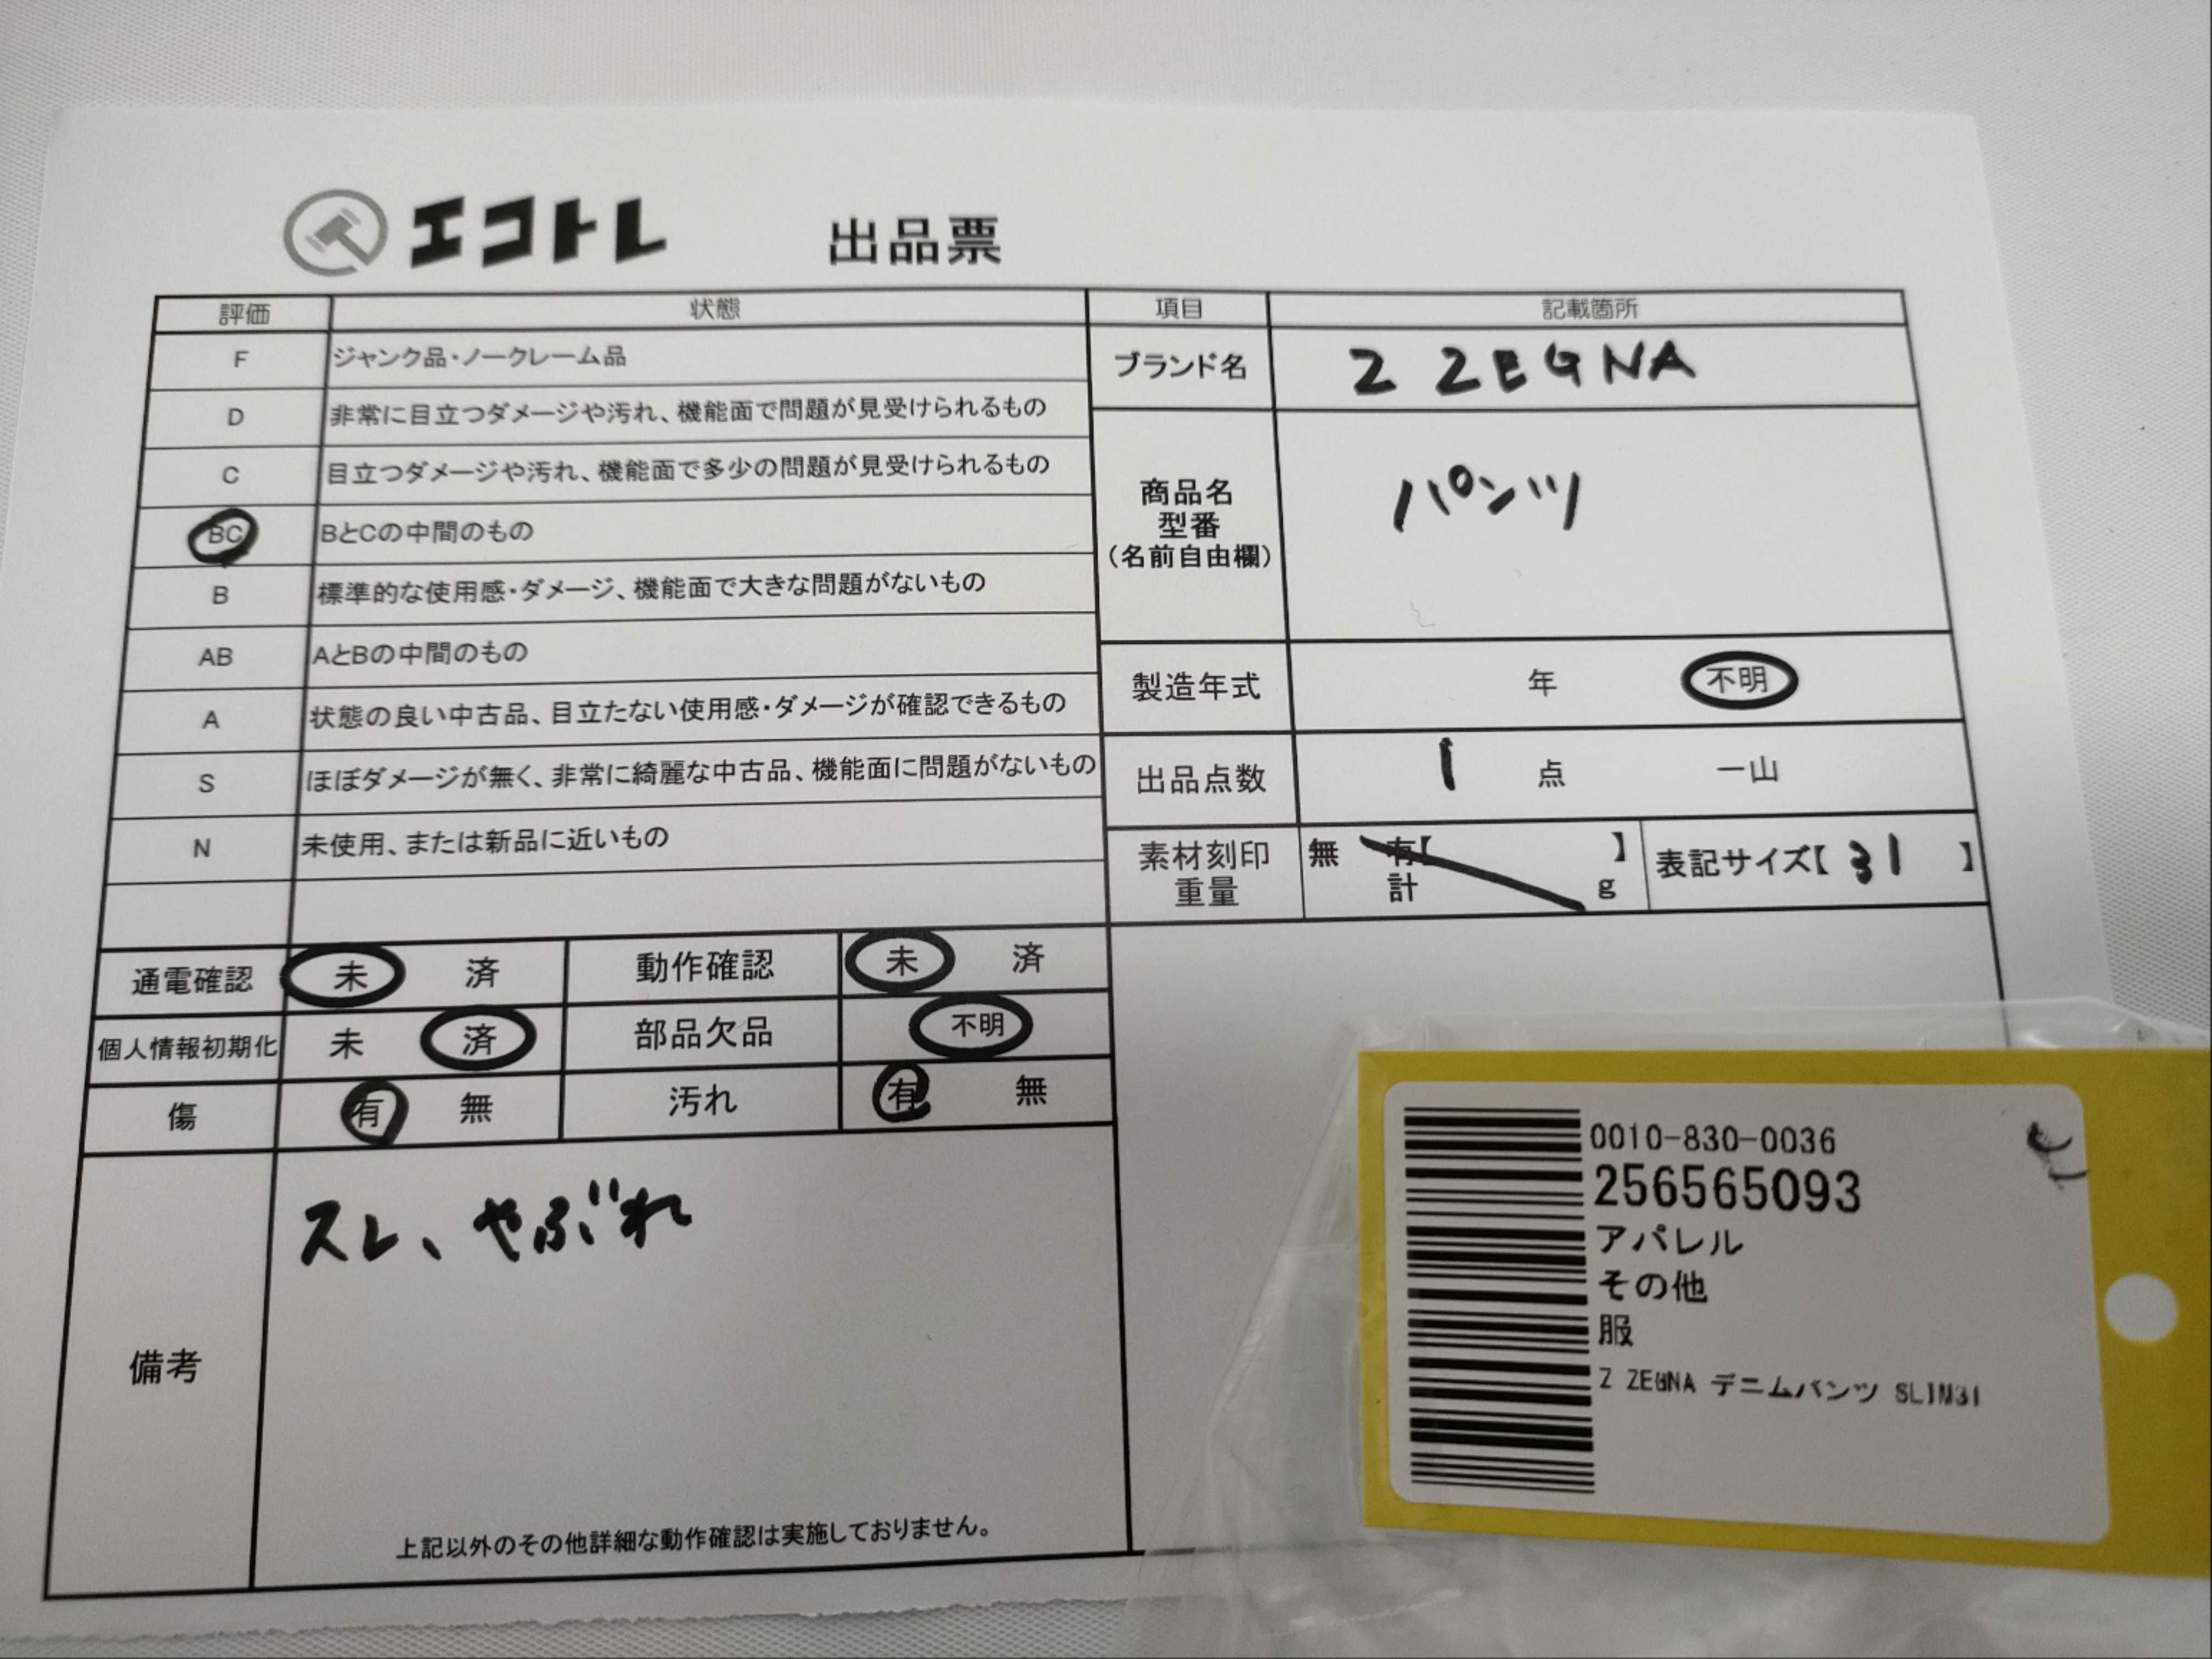 エコトレ 出品票
評価 状態 項目 記載箇所
F ジャンク品・ノークレーム品
D 非常に目立つダメージや汚れ、機能面で問題が見受けられるもの
C 目立つダメージや汚れ、機能面で多少の問題が見受けられるもの
BC BとCの中間のもの
B 標準的な使用感・ダメージ、機能面で大きな問題がないもの
AB AとBの中間のもの
A 状態の良い中古品、目立たない使用感・ダメージが確認できるもの
S ほぼダメージが無く、非常に綺麗な中古品、機能面に問題がないもの
N 未使用、または新品に近いもの
ブランド名 Z ZEGNA
商品名
型番
(名前自由欄)
パンツ
製造年式 年 不明
出品点数 1 点 一山
素材刻印 無 有【 】
重量 計 g
表記サイズ【 31 】
通電確認 未 済 動作確認 未 済
個人情報初期化 未 済 部品欠品 不明
傷 有 無 汚れ 有 無
備考
スレ、やぶれ
上記以外のその他詳細な動作確認は実施しておりません。
0010-830-0036
256565093
アパレル
その他
服
Z ZEGNA デニムパンツ SLIM31